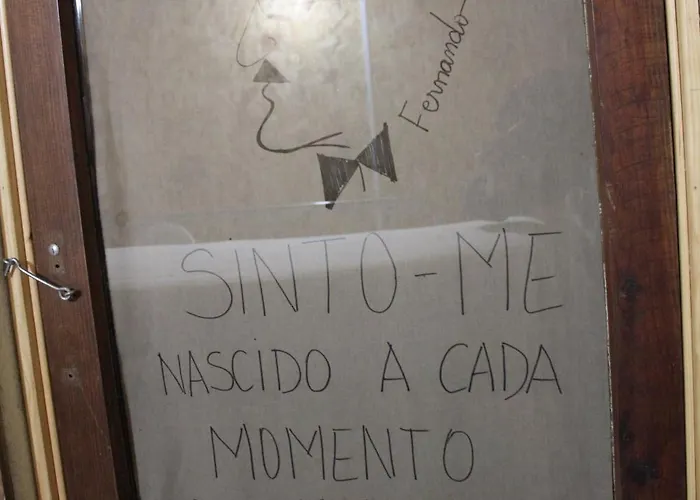 Fernando
SINTO-ME
NASCIDO A CADA
MOMENTO